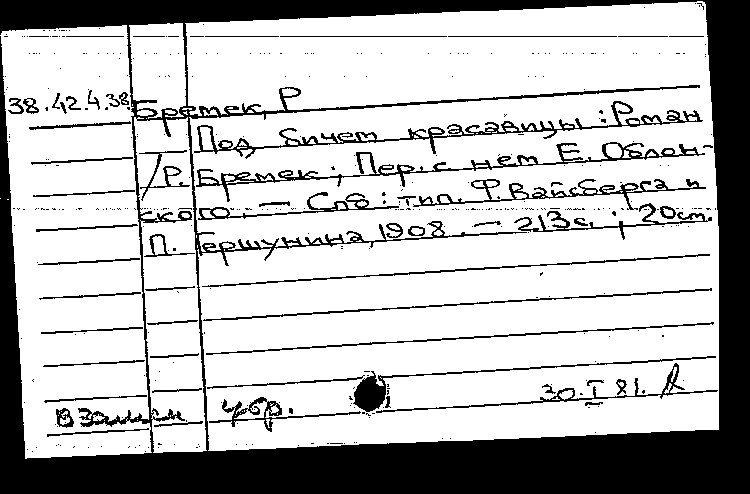 38.42.4.38 Бремек, Р
Под бичем красавицы : Роман
/Р. Бремек ; Пер. с нем Е. Облон-
ского. — Спб : тип. Ф. Вайсберга и
П. Гершунина, 1908. — 213с. ; 20см.
Взамен убр. 30.I 81.